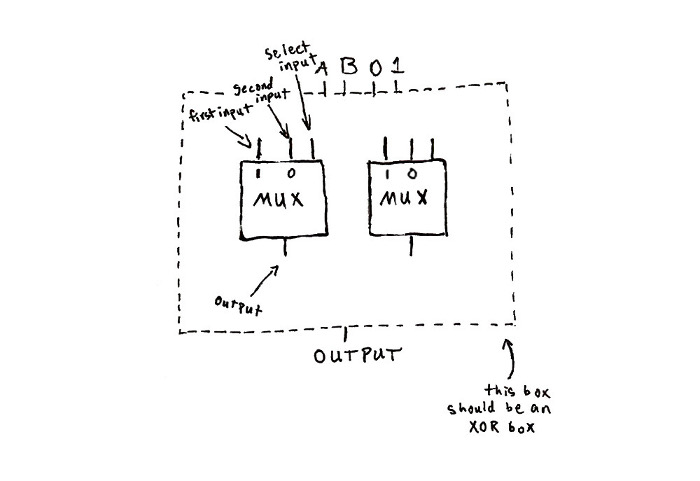 select
input
A B 0 1
second
input
first input
1 0
MUX
1 0
MUX
output
OUTPUT
this box
should be an
XOR box